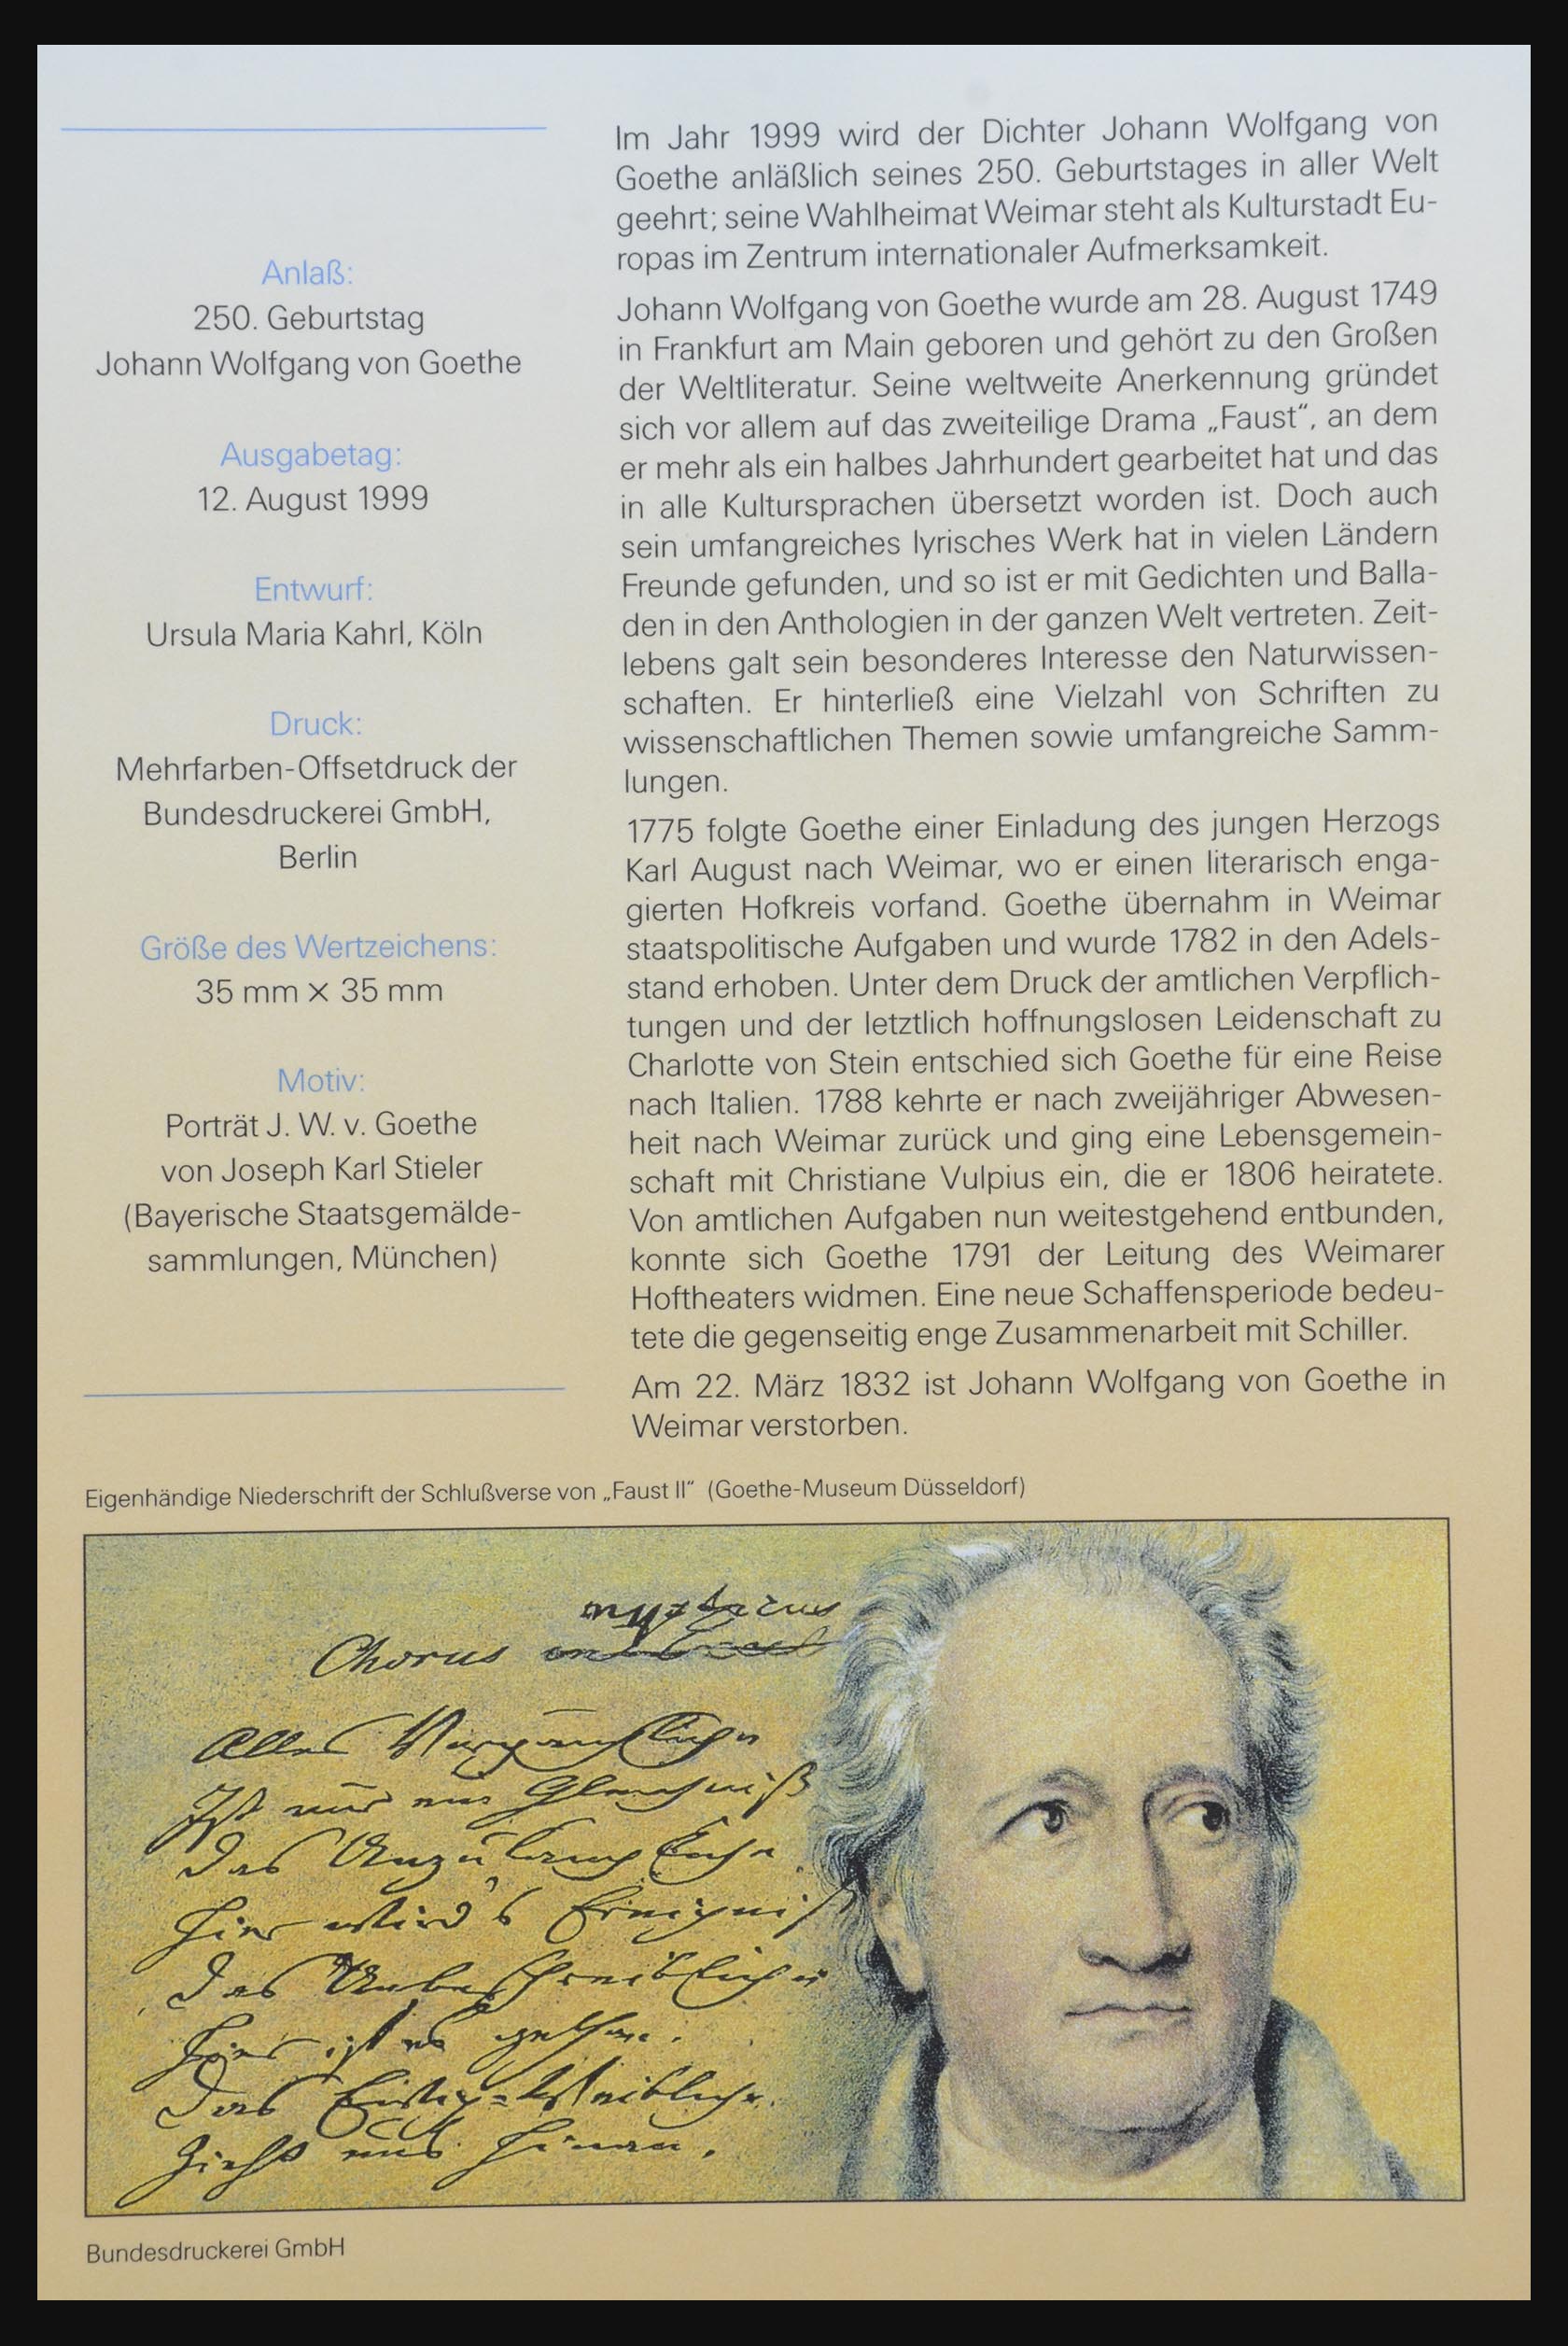 Anlaß:
250. Geburtstag
Johann Wolfgang von Goethe
Ausgabetag:
12. August 1999
Entwurf:
Ursula Maria Kahrl, Köln
Druck:
Mehrfarben-Offsetdruck der
Bundesdruckerei GmbH,
Berlin
Größe des Wertzeichens:
35 mm × 35 mm
Motiv:
Porträt J. W. v. Goethe
von Joseph Karl Stieler
(Bayerische Staatsgemälde-
sammlungen, München)
Im Jahr 1999 wird der Dichter Johann Wolfgang von
Goethe anläßlich seines 250. Geburtstages in aller Welt
geehrt; seine Wahlheimat Weimar steht als Kulturstadt Eu-
ropas im Zentrum internationaler Aufmerksamkeit.
Johann Wolfgang von Goethe wurde am 28. August 1749
in Frankfurt am Main geboren und gehört zu den Großen
der Weltliteratur. Seine weltweite Anerkennung gründet
sich vor allem auf das zweiteilige Drama „Faust“, an dem
er mehr als ein halbes Jahrhundert gearbeitet hat und das
in alle Kultursprachen übersetzt worden ist. Doch auch
sein umfangreiches lyrisches Werk hat in vielen Ländern
Freunde gefunden, und so ist er mit Gedichten und Balla-
den in den Anthologien in der ganzen Welt vertreten. Zeit-
lebens galt sein besonderes Interesse den Naturwissen-
schaften. Er hinterließ eine Vielzahl von Schriften zu
wissenschaftlichen Themen sowie umfangreiche Samm-
lungen.
1775 folgte Goethe einer Einladung des jungen Herzogs
Karl August nach Weimar, wo er einen literarisch enga-
gierten Hofkreis vorfand. Goethe übernahm in Weimar
staatspolitische Aufgaben und wurde 1782 in den Adels-
stand erhoben. Unter dem Druck der amtlichen Verpflich-
tungen und der letztlich hoffnungslosen Leidenschaft zu
Charlotte von Stein entschied sich Goethe für eine Reise
nach Italien. 1788 kehrte er nach zweijähriger Abwesen-
heit nach Weimar zurück und ging eine Lebensgemein-
schaft mit Christiane Vulpius ein, die er 1806 heiratete.
Von amtlichen Aufgaben nun weitestgehend entbunden,
konnte sich Goethe 1791 der Leitung des Weimarer
Hoftheaters widmen. Eine neue Schaffensperiode bedeu-
tete die gegenseitig enge Zusammenarbeit mit Schiller.
Am 22. März 1832 ist Johann Wolfgang von Goethe in
Weimar verstorben.
Eigenhändige Niederschrift der Schlußverse von „Faust II“ (Goethe-Museum Düsseldorf)
mysticus
Chorus
Alles Vergängliche
Ist nur ein Gleichniß
Das Unzulängliche
Hier wird's Ereigniß
Das Unbeschreibliche
Hier ist es gethan.
Das Ewig-Weibliche
Zieht uns hinan.
Bundesdruckerei GmbH